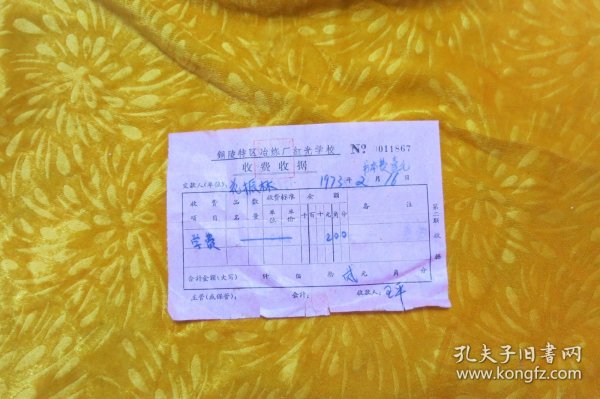 铜陵特区冶炼厂红光学校
收费收据
№ 0011867
书本费壹元
交款人(单位): 孔振林 1973年2月16日
收费 品 数 收费标准 金额 备注
项目 名 量 单位 单价 千百十元角分
学费 200
合计金额(大写) 仟 佰 拾 贰元 角 分
主管(或保管): 会计: 收款人: 王平
第二联 收据
孔夫子旧书网
www.kongfz.com